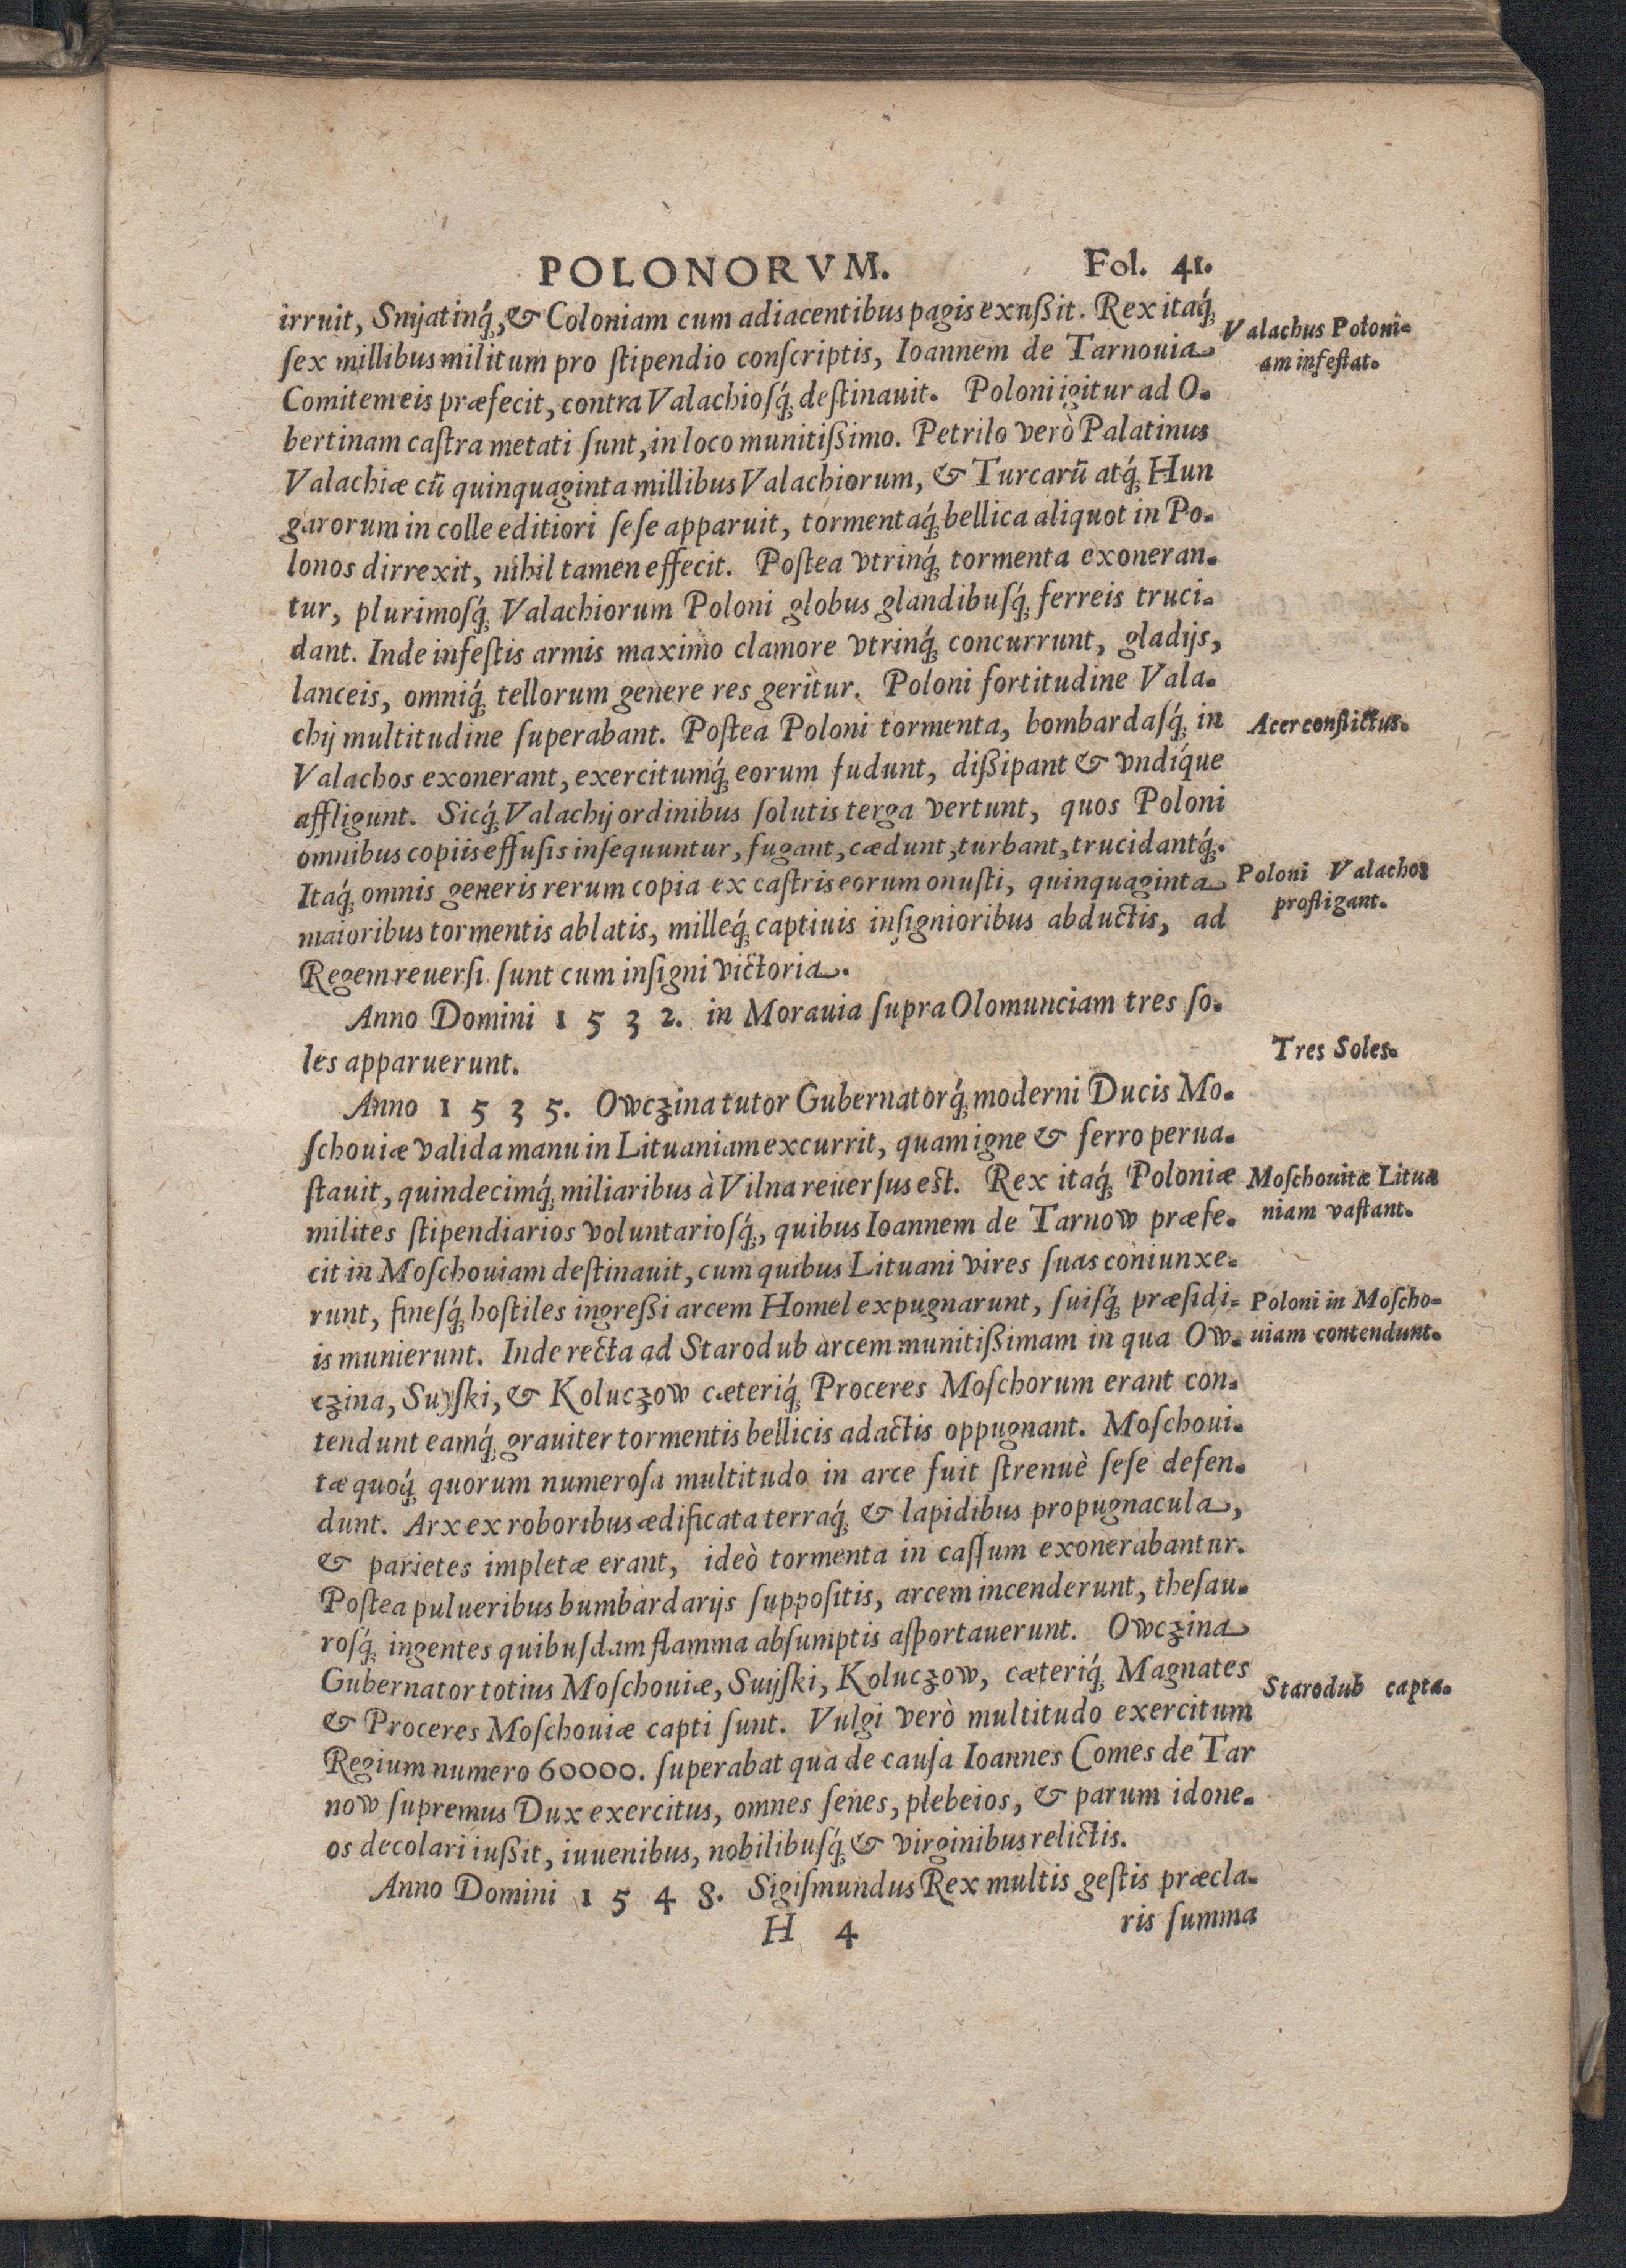 POLONORVM. Fol. 41.
irruit, Snijatinq́ꝫ, & Coloniam cum adiacentibus pagis exußit. Rex itaq́ꝫ
ſex millibus militum pro ſtipendio conſcriptis, Ioannem de Tarnouia
Comitem eis præfecit, contra Valachioſq́ꝫ deſtinauit. Poloni igitur ad O-
bertinam caſtra metati ſunt, in loco munitißimo. Petrilo verò Palatinus
Valachiæ cū quinquaginta millibus Valachiorum, & Turcarū atq́ꝫ Hun
garorum in colle editiori ſeſe apparuit, tormentaq́ꝫ bellica aliquot in Po-
lonos dirrexit, nihil tamen effecit. Poſtea vtrinq́ꝫ tormenta exoneran-
tur, plurimoſq́ꝫ Valachiorum Poloni globus glandibuſq́ꝫ ferreis truci-
dant. Inde infeſtis armis maximo clamore vtrinq́ꝫ concurrunt, gladijs,
lanceis, omniq́ꝫ tellorum genere res geritur. Poloni fortitudine Vala-
chij multitudine ſuperabant. Poſtea Poloni tormenta, bombardaſq́ꝫ in
Valachos exonerant, exercitumq́ꝫ eorum fudunt, dißipant & vndíque
affligunt. Sicq́ꝫ Valachij ordinibus ſolutis terga vertunt, quos Poloni
omnibus copiis effuſis inſequuntur, fugant, cædunt, turbant, trucidantq́ꝫ.
Itaq́ꝫ omnis generis rerum copia ex caſtris eorum onuſti, quinquaginta
maioribus tormentis ablatis, milleq́ꝫ captiuis inſignioribus abductis, ad
Regem reuerſi ſunt cum inſigni victoria.
Anno Domini 1532. in Morauia ſupra Olomunciam tres ſo-
les apparuerunt.
Anno 1535. Owczina tutor Gubernatorq́ꝫ moderni Ducis Mo-
ſchouiæ valida manu in Lituaniam excurrit, quam igne & ferro perua-
ſtauit, quindecimq́ꝫ miliaribus à Vilna reuerſus est. Rex itaq́ꝫ Poloniæ
milites ſtipendiarios voluntarioſq́ꝫ, quibus Ioannem de Tarnow præfe-
cit in Moſchouiam deſtinauit, cum quibus Lituani vires ſuas coniunxe-
runt, fineſq́ꝫ hoſtiles ingreßi arcem Homel expugnarunt, ſuiſq́ꝫ præſidi-
is munierunt. Inde recta ad Starodub arcem munitißimam in qua Ow-
czina, Suyſki, & Koluczow cæteriq́ꝫ Proceres Moſchorum erant con-
tendunt eamq́ꝫ grauiter tormentis bellicis adactis oppugnant. Moſchoui-
tæ quoq́ꝫ quorum numeroſa multitudo in arce fuit ſtrenuè ſeſe defen-
dunt. Arx ex roboribus ædificata terraq́ꝫ & lapidibus propugnacula,
& parietes impletæ erant, ideò tormenta in caſſum exonerabantur.
Poſtea pulueribus bumbardarijs ſuppoſitis, arcem incenderunt, theſau-
roſq́ꝫ ingentes quibuſdam flamma abſumptis aſportauerunt. Owczina
Gubernator totius Moſchouiæ, Suijſki, Koluczow, cæteriq́ꝫ Magnates
& Proceres Moſchouiæ capti ſunt. Vulgi verò multitudo exercitum
Regium numero 60000. ſuperabat qua de cauſa Ioannes Comes de Tar
now ſupremus Dux exercitus, omnes ſenes, plebeios, & parum idone-
os decolari iußit, iuuenibus, nobilibuſq́ꝫ & virginibus relictis.
Anno Domini 1548. Sigiſmundus Rex multis geſtis præcla-
H 4 ris ſumma
Valachus Poloni-
am infeſtat.
Acer conflictus.
Poloni Valachos
profligant.
Tres Soles.
Moſchouitæ Litua
niam vaſtant.
Poloni in Moſcho-
uiam contendunt.
Starodub capta.